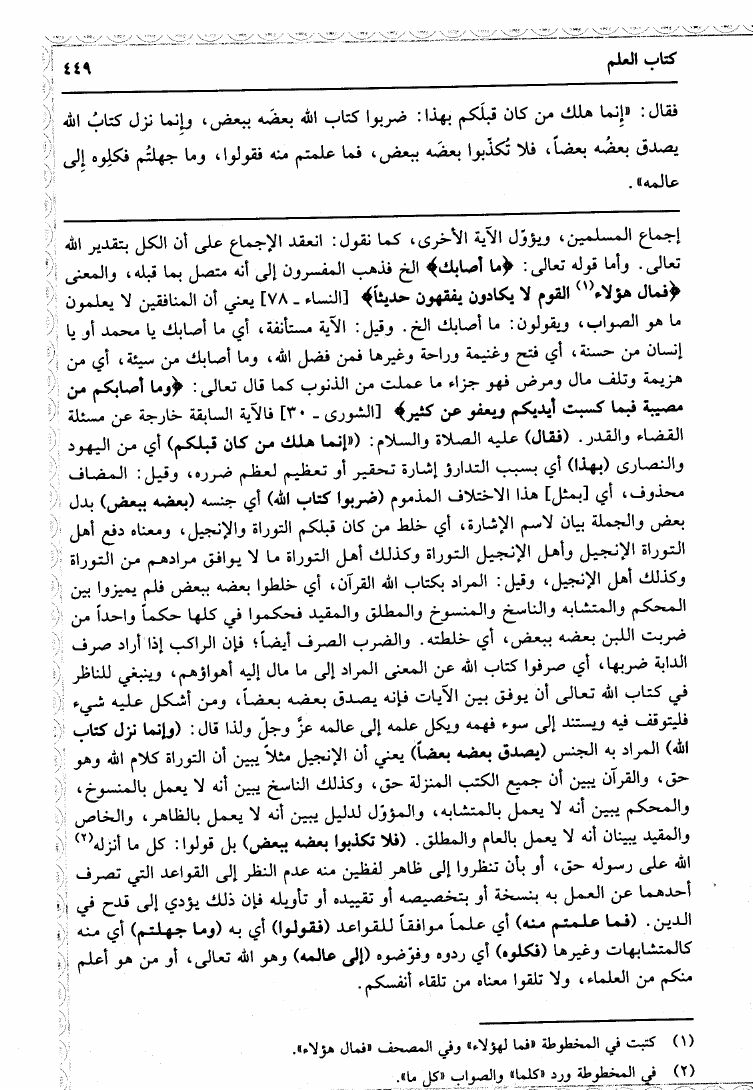 كتاب العلم
٤٤٩
فقال: «إِنما هلك من كان قبلَكم بهذا: ضربوا كتاب الله بعضَه ببعض، وإِنما نزل كتابُ الله
يصدق بعضُه بعضاً، فلا تُكذّبوا بعضَه ببعض، فما علمتم منه فقولوا، وما جهلتُم فكلِوه إِلى
عالمه».
إجماع المسلمين، ويؤوّل الآية الأخرى، كما نقول: انعقد الإجماع على أن الكل بتقدير الله
تعالى. وأما قوله تعالى: ﴿ما أصابك﴾ الخ فذهب المفسرون إلى أنه متصل بما قبله، والمعنى
﴿فمال هؤلاء(١) القوم لا يكادون يفقهون حديثاً﴾ [النساء ـ ٧٨] يعني أن المنافقين لا يعلمون
ما هو الصواب، ويقولون: ما أصابك الخ. وقيل: الآية مستأنفة، أي ما أصابك يا محمد أو يا
إنسان من حسنة، أي فتح وغنيمة وراحة وغيرها فمن فضل الله، وما أصابك من سيئة، أي من
هزيمة وتلف مال ومرض فهو جزاء ما عملت من الذنوب كما قال تعالى: ﴿وما أصابكم من
مصيبة فبما كسبت أيديكم ويعفو عن كثير﴾ [الشورى ـ ٣٠] فالآية السابقة خارجة عن مسئلة
القضاء والقدر. (فقال) عليه الصلاة والسلام: («إنما هلك من كان قبلكم) أي من اليهود
والنصارى (بهذا) أي بسبب التدارؤ إشارة تحقير أو تعظيم لعظم ضرره، وقيل: المضاف
محذوف، أي [بمثل] هذا الاختلاف المذموم (ضربوا كتاب الله) أي جنسه (بعضه ببعض) بدل
بعض والجملة بيان لاسم الإشارة، أي خلط من كان قبلكم التوراة والإنجيل، ومعناه دفع أهل
التوراة الإنجيل وأهل الإنجيل التوراة وكذلك أهل التوراة ما لا يوافق مرادهم من التوراة
وكذلك أهل الإنجيل، وقيل: المراد بكتاب الله القرآن، أي خلطوا بعضه ببعض فلم يميزوا بين
المحكم والمتشابه والناسخ والمنسوخ والمطلق والمقيد فحكموا في كلها حكماً واحداً من
ضربت اللبن بعضه ببعض، أي خلطته. والضرب الصرف أيضاً؛ فإن الراكب إذا أراد صرف
الدابة ضربها، أي صرفوا كتاب الله عن المعنى المراد إلى ما مال إليه أهواؤهم، وينبغي للناظر
في كتاب الله تعالى أن يوفق بين الآيات فإنه يصدق بعضه بعضاً، ومن أشكل عليه شيء
فليتوقف فيه ويستند إلى سوء فهمه ويكل علمه إلى عالمه عزَّ وجلّ ولذا قال: (وإنما نزل كتاب
الله) المراد به الجنس (يصدق بعضه بعضاً) يعني أن الإنجيل مثلاً يبين أن التوراة كلام الله وهو
حق، والقرآن يبين أن جميع الكتب المنزلة حق، وكذلك الناسخ يبين أنه لا يعمل بالمنسوخ،
والمحكم يبين أنه لا يعمل بالمتشابه، والمؤوّل لدليل يبين أنه لا يعمل بالظاهر، والخاص
والمقيد يبينان أنه لا يعمل بالعام والمطلق. (فلا تكذبوا بعضه ببعض) بل قولوا: كل ما أنزله(٢)
الله على رسوله حق، أو بأن تنظروا إلى ظاهر لفظين منه عدم النظر إلى القواعد التي تصرف
أحدهما عن العمل به بنسخة أو بتخصيصه أو تقييده أو تأويله فإن ذلك يؤدي إلى قدح في
الدين. (فما علمتم منه) أي علماً موافقاً للقواعد (فقولوا) أي به (وما جهلتم) أي منه
كالمتشابهات وغيرها (فكلوه) أي ردوه وفوّضوه (إلى عالمه) وهو الله تعالى، أو من هو أعلم
منكم من العلماء، ولا تلقوا معناه من تلقاء أنفسكم.
(١) كتبت في المخطوطة «فما لهؤلاء» وفي المصحف «فمال هؤلاء».
(٢) في المخطوطة ورد «كلما» والصواب «كل ما».